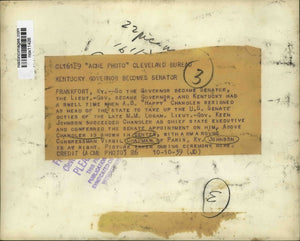 CLV61129 "ACME PHOTO" CLEVELAND BUREAU
KENTUCKY GOVERNOR BECOMES SENATOR
3
FRANKFORT, KY.--SO THE GOVERNOR BECAME SENATOR,
THE LIEUT.-GOV. BECAME GOVERNOR, AND KENTUCKY HAD
A SWELL TIME WHEN A.B. "HAPPY" CHANDLER RESIGNED
AS HEAD OF THE STATE TO TAKE UP THE U.S. SENATE
DUTIES OF THE LATE M.M. LOGAN. LIEUT.-GOV. KEEN
JOHNSON SUCCEEDED CHANDLER AS CHIEF STATE EXECUTIVE
AND CONFERRED THE SENATE APPOINTMENT ON HIM. ABOVE
CHANDLER IS SHOWN IN CENTER, WITH ARM AROUND
CONGRESSMAN VIRGIL CHAPMAN OF PARIS, KY. JOHNSON
IS AT RIGHT. PICTURE TAKEN DURING CEREMONY HERE.
CREDIT (ACME PHOTO) 86 10-10-39 (JD)
PLEASE
3